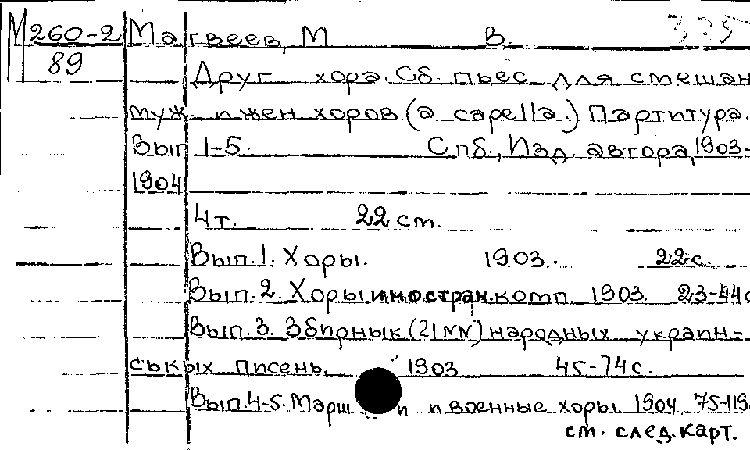 М 260-2 Матвеев, М В. 335
89
Друг хора. Сб. пьес для смешан
муж. и жен хоров (a capella.) Партитура.
Вып 1-5. Спб, Изд автора, 1903-
1904
4 т. 22 см.
Вып. 1. Хоры. 1903. 22 с.
Вып. 2. Хоры иностран. комп 1903. 23-44 с
Вып. 3. Збирнык (21 NN) народных украин-
ськых писень. 1903 45-74 с.
Вып. 4-5. Марш и военные хоры. 1904. 75-119
см. след. карт.